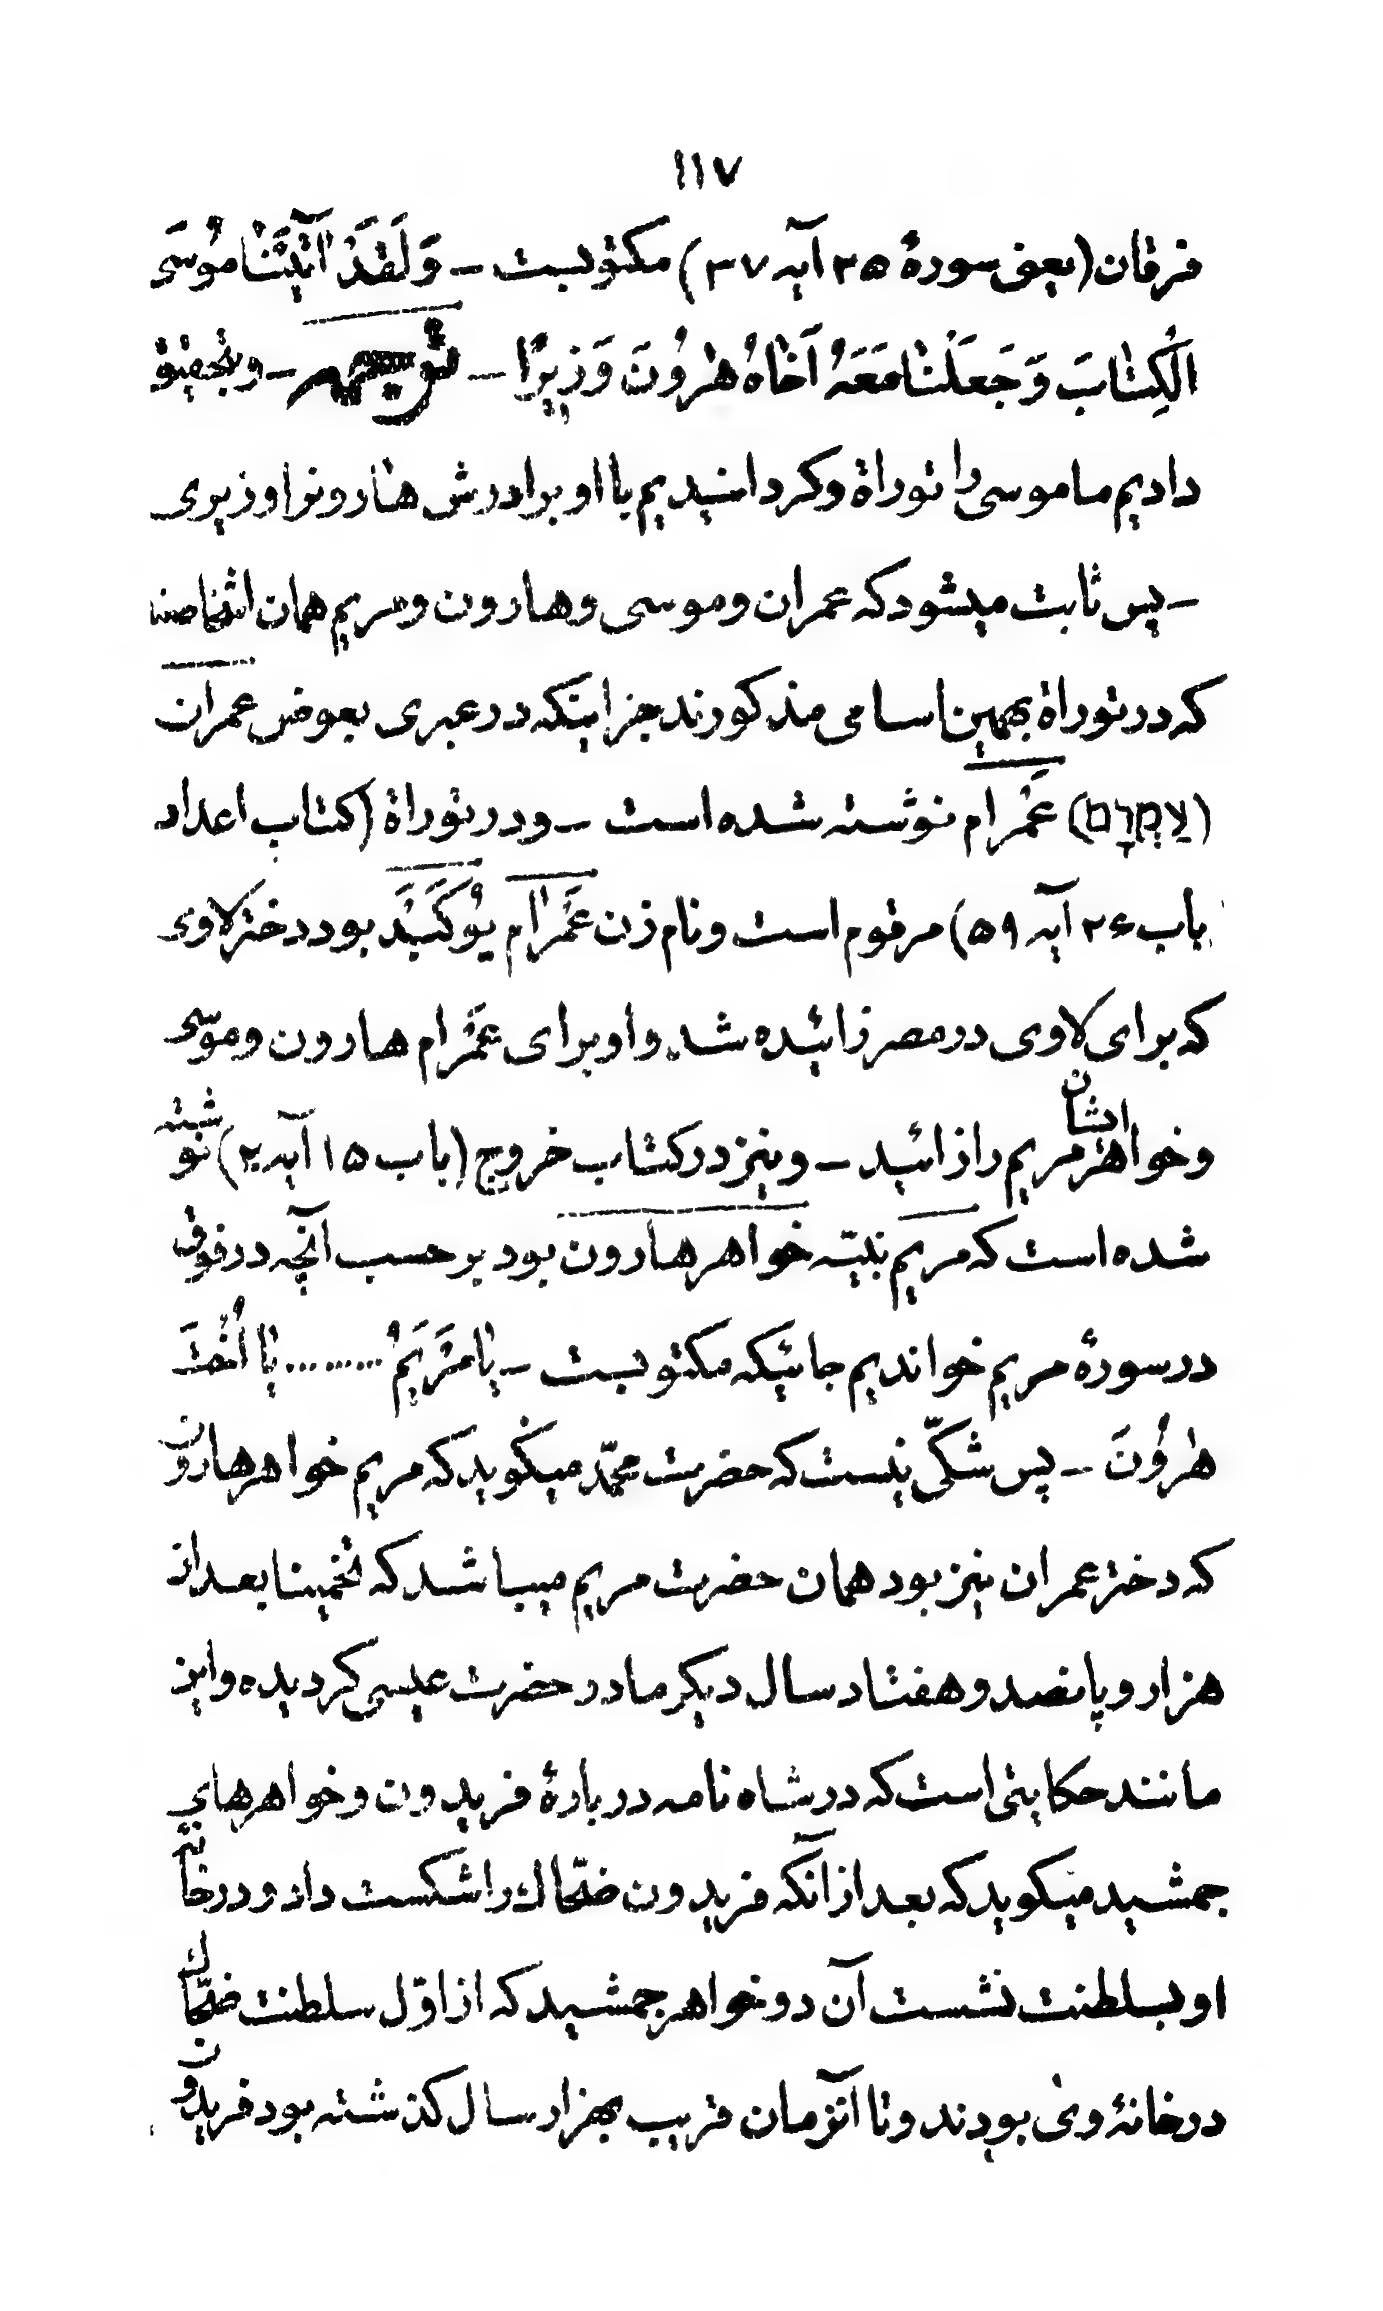 ۱۱۷
فرقان (یعنی سورهٔ ۲۵ آیه ۳۷) مکتوبست – وَلَقَدْ آتَیْنَا مُوسَی
الْکِتَابَ وَجَعَلْنَا مَعَهُ أَخَاهُ هٰرُونَ وَزِیرًا – – وبتحقیق
دادیم ما موسی را توراة وکردانیدیم با او برادرش هارونرا وزیری
– پس ثابت میشود که عمران وموسی وهارون ومریم همان اشخاصند
که در توراة بهمین اسامی مذکورند جز اینکه در عبری بعوض عمران
(עַמְרָם) عَمْرام نوشته شده است – ودر توراة (کتاب اعداد
باب ۲۶ آیه ۵۹) مرقوم است ونام زن عَمْرَام یُوکَبَد بود دختر لاوی
که برای لاوی در مصر زائیده شد واو برای عَمْرام هارون وموسی
وخواهر ایشان مریم را زائید – ونیز در کتاب خروج (باب ۱۵ آیه ۲۰) نوشته
شده است که مریم نبیّه خواهر هارون بود بر حسب آنچه در فوق
در سورهٔ مریم خواندیم جائیکه مکتوبست – یَا مَرْیَمُ ......... یَا أُخْتَ
هٰرُونَ – پس شکّی نیست که حضرت محمّد میکوید که مریم خواهر هارون
که دختر عمران نیز بود همان حضرت مریم میباشد که تخمینا بعد از
هزار وپانصد وهفتاد سال دیکر مادر حضرت عیسی کردیده واین
مانند حکایتی است که در شاه نامه در بارهٔ فریدون وخواهرهای
جمشید میکوید که بعد از آنکه فریدون ضحّاک را شکست داد ودر خانهٔ
او بسلطنت نشست آن دو خواهر جمشید که از اوّل سلطنت ضحّاک
در خانهٔ وی بودند وتا آنزمان قریب بهزار سال کذشته بود فریدون